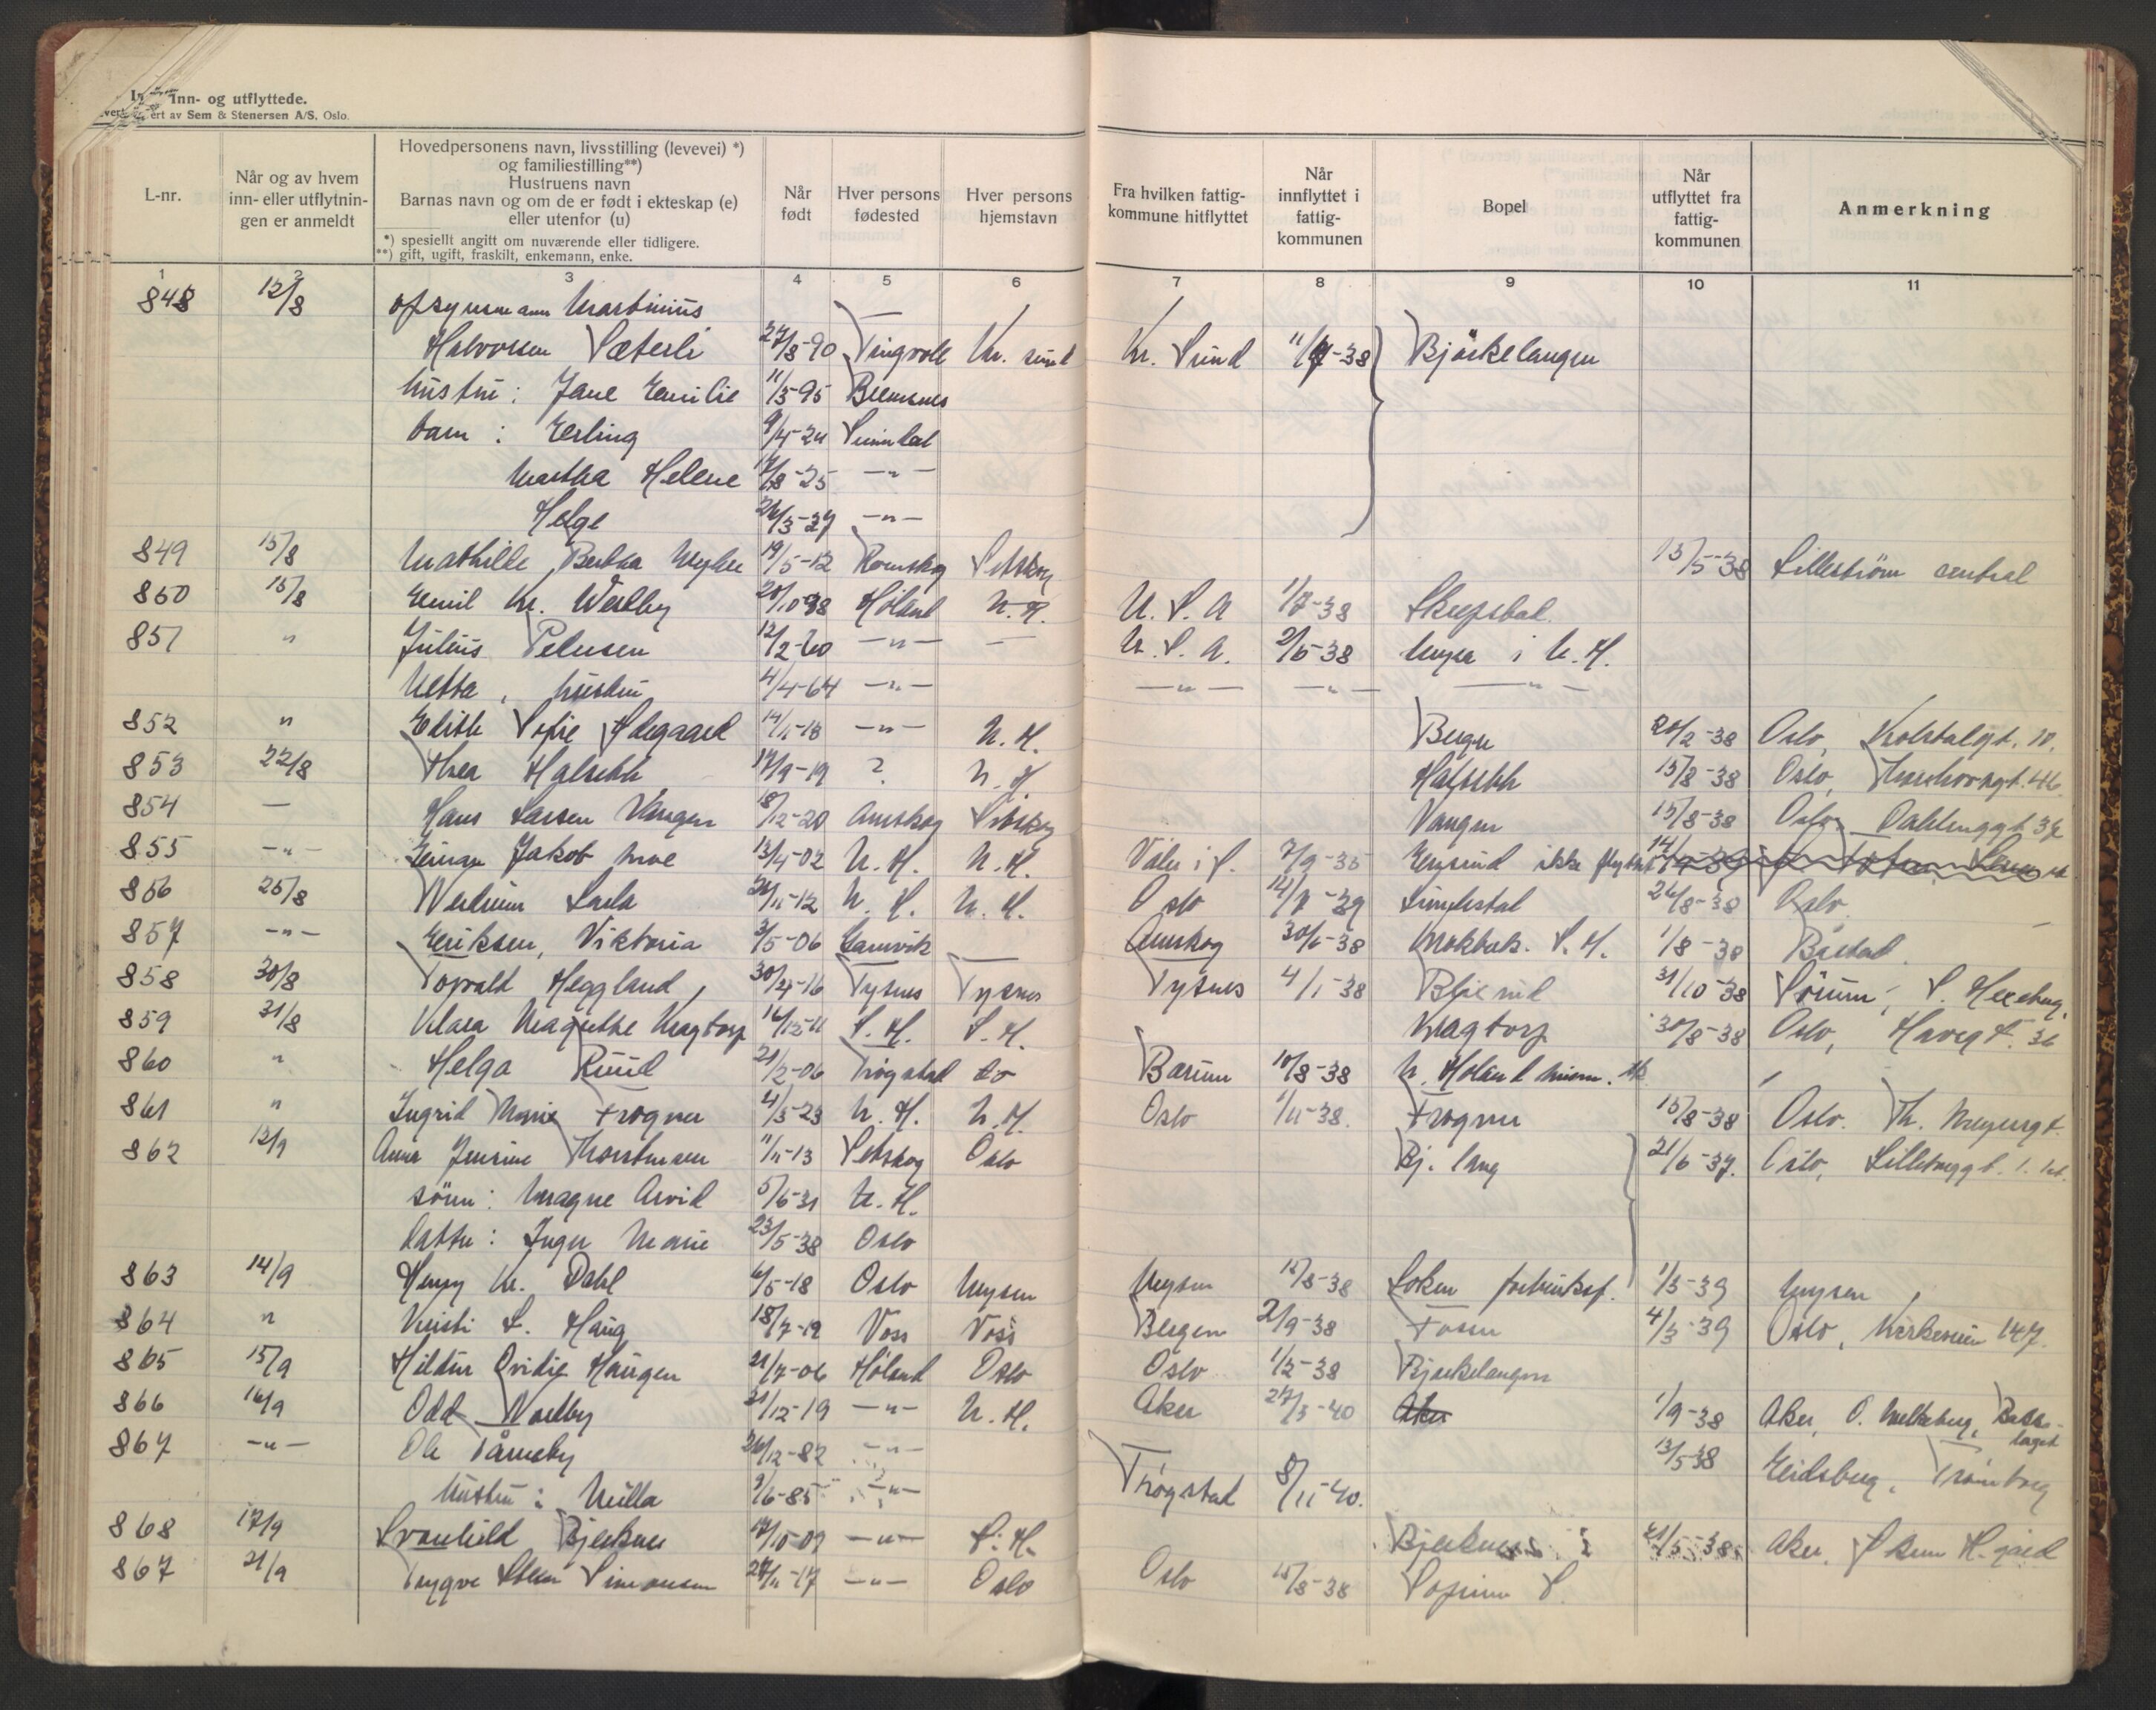 Inn- og utflyttede.
ert av Sem & Stenersen A/S, Oslo.
L-nr. | Når og av hvem inn- eller utflytnin- gen er anmeldt | Hovedpersonens navn, livsstilling (levevei) *) og familiestilling**) Hustruens navn Barnas navn og om de er født i ekteskap (e) eller utenfor (u) *) spesiellt angitt om nuværende eller tidligere. **) gift, ugift, fraskilt, enkemann, enke. | Når født | Hver persons fødested | Hver persons hjemstavn | Fra hvilken fattig- kommune hitflyttet | Når innflyttet i fattig- kommunen | Bopel | Når utflyttet fra fattig- kommunen | Anmerkning
1 2 3 4 5 6 7 8 9 10 11
848 12/8 opsynsmann Martinius
Halvorsen Sæterli 27/8-90 Tingvoll Kr. sund Kr. Sund 11/7-38 Bjørkelangen
hustru: Jane Emilie 11/5-95 Bremsnes
barn: Erling 9/4-24 Sunndal
Martha Helene 17/8-25 -"-
Helge 26/3-27 -"-
849 15/8 Mathilde Bertha 19/5-12 Rømskog Setskog 15/5-38 Lillestrøm central
850 15/8 Emil Kr. Westby 20/10-98 Høland N.H. U.S.A 1/7-38
851 " Julius Pettersen 12/2-60 -"- - U.S.A. 2/6-38 i N.H.
Netta, hustru 4/4-64 -"- -"- -"- -"-
852 " Edith Sofie Ødegaard 14/11-18 -"- N.H. 20/2-38 Oslo,
853 22/8 Thea 17/9-19 ? N.H. 15/8-38 Oslo,
854 - Hans Larsen Vangen 18/12-20 Aurskog Setskog Vangen 15/8-38 Oslo, 37
855 -"- Einar Jakob Moe 13/4-02 N.H. N.H. Våler i S. 7/9-35 ikke flyttet
856 25/8 24/11-12 N.H. N.H. Oslo 26/8-38 Oslo
857 -"- Eriksen, Viktoria 3/5-06 Gamvik - Aurskog 30/6-38 S.H. 1/8-38 Båstad
858 30/8 Torvald Heggland, 30/4-16 Tysnes Tysnes Tysnes 4/1-38 31/10-38 Sørum,
859 31/8 Klara Magrethe Kragtorp S.H. S.H. Kragtorp 30/8-38 Oslo, Havegt. 36
860 " Helga Ruud 21/2-06 Trøgstad do Bærum 10/8-38 N. Høland
861 " Ingrid Marie Frogner 4/3-23 N.H. N.H. Oslo 1/11-38. Frogner 15/8-38 Oslo. Th. Meyersgt.
862 12/9 Anna Jensine Thorstensen 11/11-13 Setskog Oslo Bj. lang 21/6-37. Oslo,
sønn: Magne Arvid 5/6-31 N.H.
datter: Inger Marie 23/5-38 Oslo
863 14/9 Henry Kr. Dahl 6/5-18 Oslo Mysen Mysen 12/8-38 Løken 1/3-39 Mysen
864 " Kirsti L. Haug 18/7-12 Voss Voss Bergen 2/9-38 Fosser 4/3-39 Oslo, Kirkeveien 147.
865 15/9 Hildur Ovidie Haugen 21/7-06 Høland Oslo Oslo 1/3-38 Bjørkelangen
866 16/9 Odd 31/12-19 -"- N.H. Aker 27/3-40 Aker 1/9-38 Aker,
867 -"- Ole Tårneby 26/12-82 -"- 13/5-38 Eidsberg, Trømborg
hustru: Milla 9/6-85 -"- Trøgstad 8/11-40.
868 17/9 Svanhild Bjerknes 17/10-09 -"- S.H. Bjerknes 21/5-38 Aker.
867 21/9 Trygve Sten Simonsen 27/11-17 -"- Oslo Oslo 15/8-38